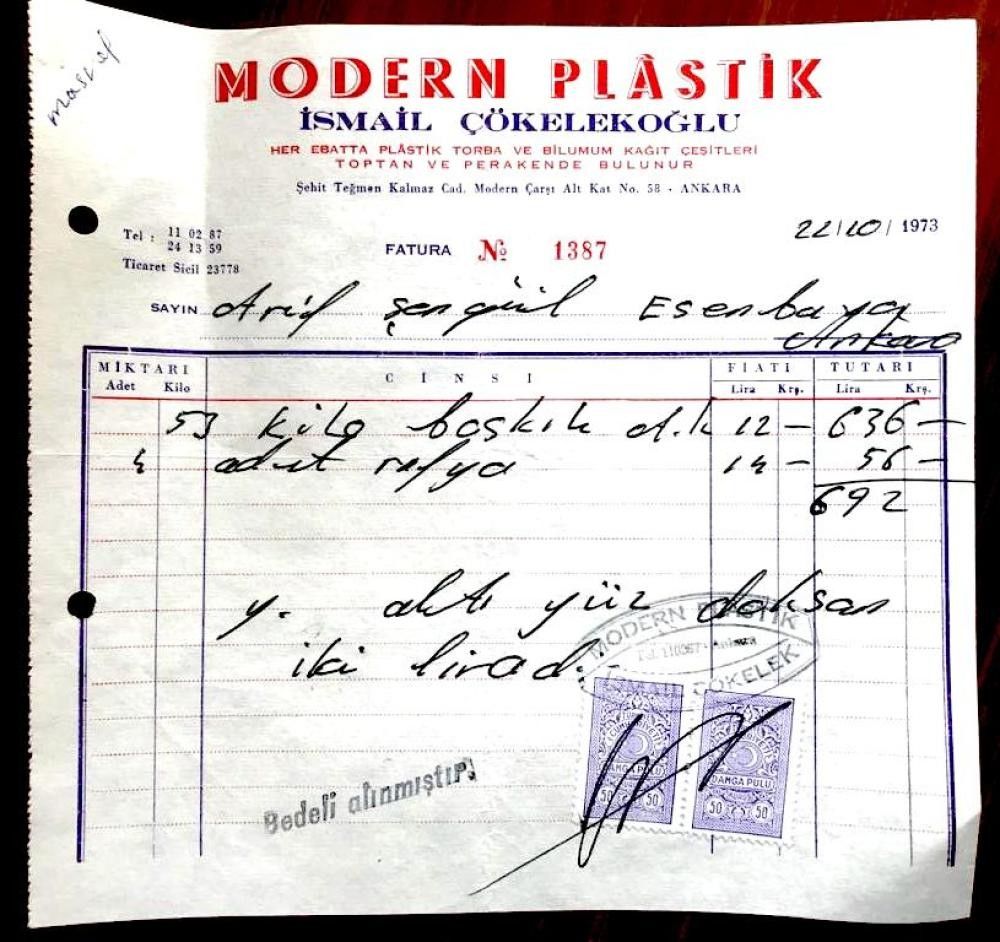 masraf
MODERN PLÂSTİK
İSMAİL ÇÖKELEKOĞLU
HER EBATTA PLÂSTİK TORBA VE BİLUMUM KAĞIT ÇEŞİTLERİ
TOPTAN VE PERAKENDE BULUNUR
Şehit Teğmen Kalmaz Cad. Modern Çarşı Alt Kat No. 58 - ANKARA
Tel : 11 02 87
24 13 59
Ticaret Sicil 23778
FATURA № 1387
22/10/1973
SAYIN Arif Şengül Esenboğa
Ankara
MİKTARI CİNSİ FİATI TUTARI
Adet Kilo Lira Krş. Lira Krş.
53 kilo baskılı 12 – 636 –
4 adet rafya 14 – 56 –
692
y. altı yüz doksan
iki lirad.
MODERN PLASTİK
Ankara
İSMAİL ÇÖKELEK
DAMGA PULU
50 50
DAMGA PULU
50 50
Bedeli alınmıştır.